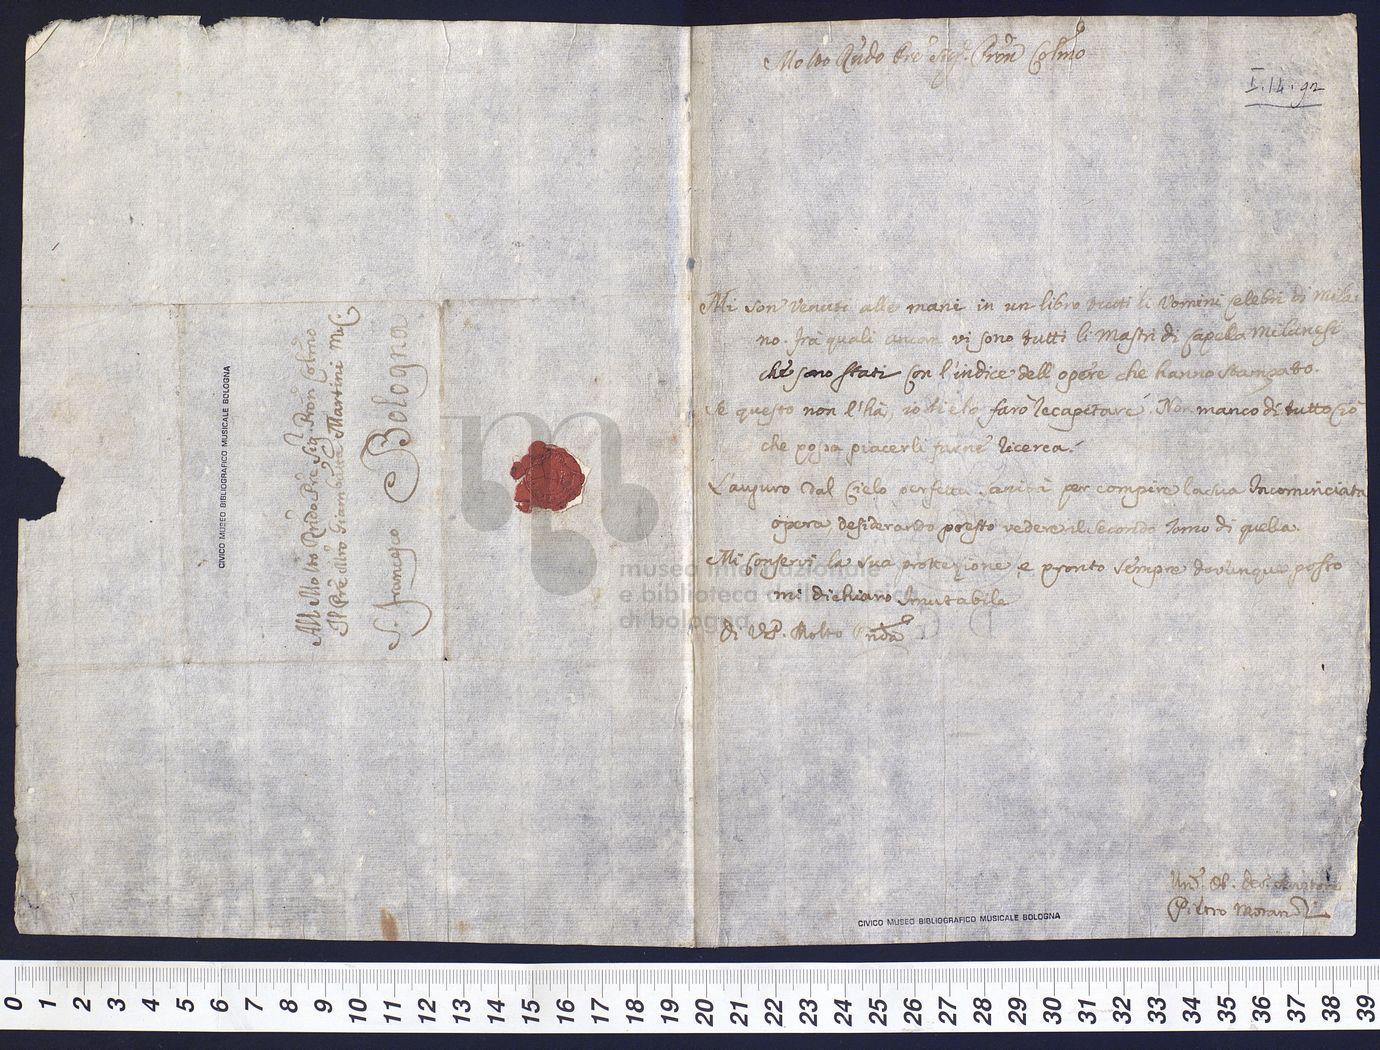 Molto Rndo Pre Sigr. Pron Colmo
I.14.92
Mi son venuti alle mani in un libro tutti li Uomini celebri di Mila-
no. frà quali ancora vi sono tutti li Mastri di Capella Milanesi
che sono stati con l'indice dell'opere che hanno stampato.
Se questo non l'hà, io lielo farò recapitare. Non manco di tutto ciò
che possa piacerli farne ricerca.
L'auguro dal Cielo perfetta sanità per compire la sua Incominciata
opera, desiderando presto vedere il Secondo Tomo di quella.
Mi conservi la sua protezione, e pronto sempre dovunque posso
mi dichiaro Imutabile
Di VS. Molto Rnda
Umo. Ob. dev. Servitore
Pietro Morandi
CIVICO MUSEO BIBLIOGRAFICO MUSICALE BOLOGNA
All Molto Rndo Pre Sig. Pron Colmo
Il Pre Mro Giambatta Martini M.C.
S. Francesco Bologna
CIVICO MUSEO BIBLIOGRAFICO MUSICALE BOLOGNA
museo internazionale
e biblioteca della musica
di bologna
0 1 2 3 4 5 6 7 8 9 10 11 12 13 14 15 16 17 18 19 20 21 22 23 24 25 26 27 28 29 30 31 32 33 34 35 36 37 38 39